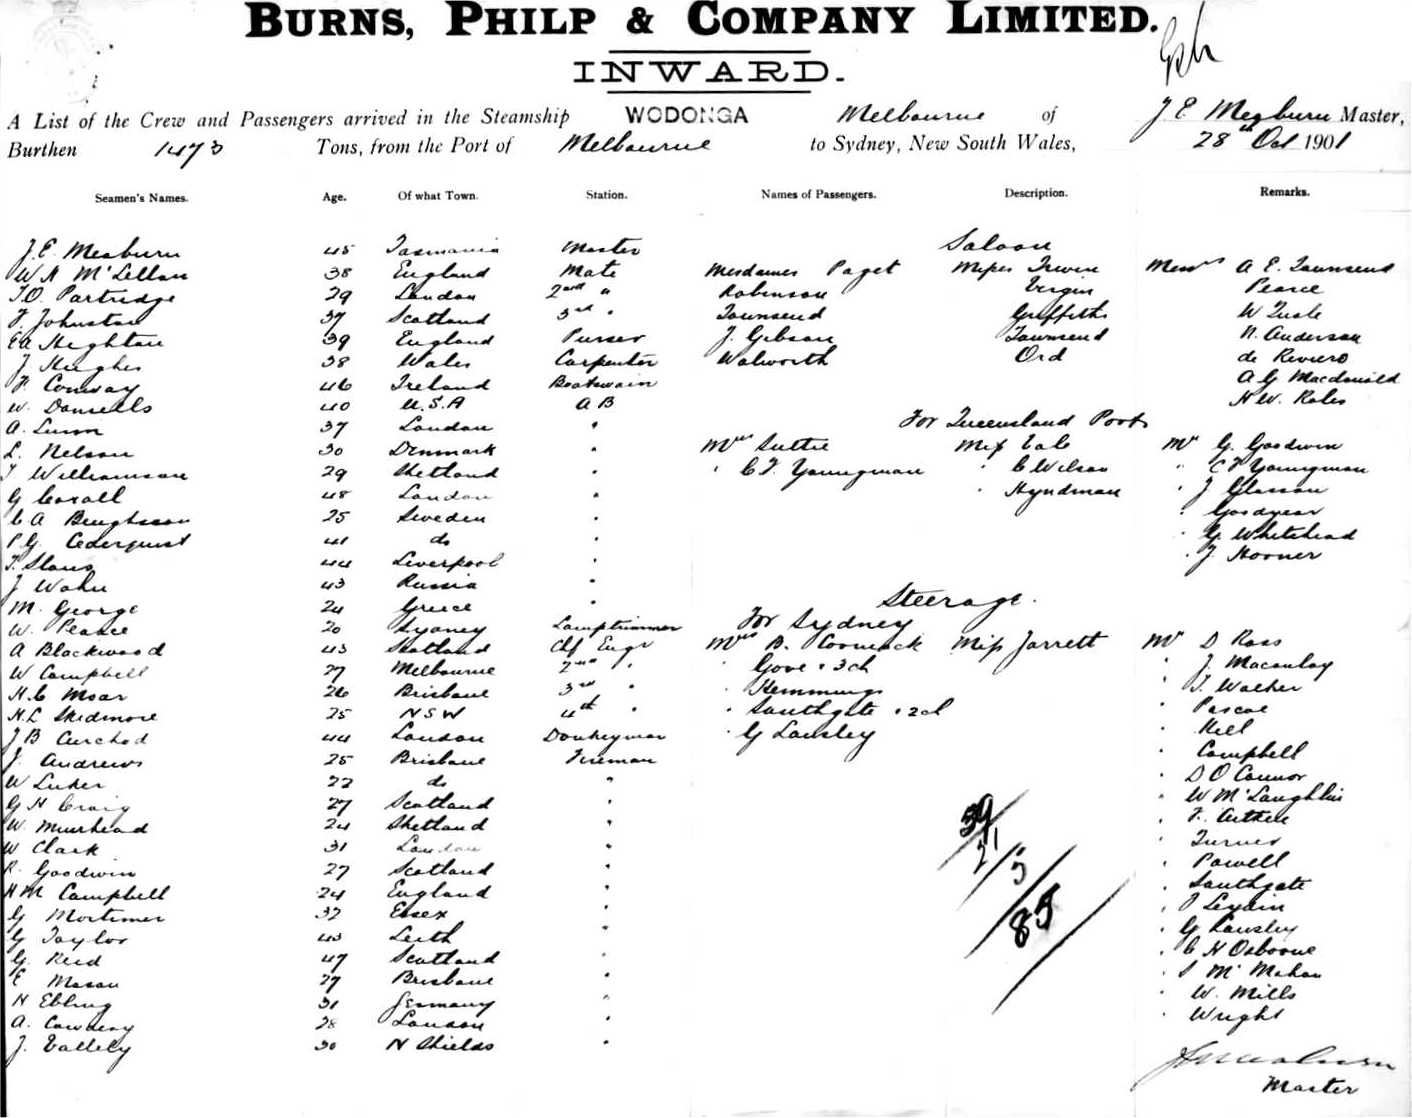 BURNS, PHILP & COMPANY LIMITED.
INWARD.
A List of the Crew and Passengers arrived in the Steamship WODONGA Melbourne of J. E. Meaburn Master,
Burthen 1473 Tons, from the Port of Melbourne to Sydney, New South Wales, 28th Oct 1901
Seamen's Names. Age. Of what Town. Station. Names of Passengers. Description. Remarks.
J. E. Meaburn 45 Tasmania Master Saloon
W H McLellan 38 England Mate Mesdames Paget Misses Irwin Messrs A E. Townsend
T. O. Partridge 29 London 2nd " Robinson Virgin Pearce
F. Johnston 37 Scotland 3rd " Townsend Griffiths W
E A Heghton 39 England Purser J. Gibson Townsend N. Anderson
J Hughes 38 Wales Carpenter Walworth Ord de Reviero
F. Conway 46 Ireland Boatswain A G Macdonald
W. Daniells 40 U.S.A A B H W. Roles
A. Lunn 37 London " For Queensland Ports
L. Nelson 30 Denmark " Mrs Suttie Miss Vale Mr G. Goodwin
T Williamson 29 Shetland " " C F. Youngman " C Wilson " C F Youngman
G Coxall 48 London " " Hyndman " J Glasson
C A Bengtsson 25 Sweden " " Goodyear
P G Cederquist 41 do " " G Whitehead
T. Slaus 44 Liverpool " " J Horner
J Wahn 43 Russia "
M. George 24 Greece " Steerage.
W. Pearce 20 Sydney Lamptrimmer For Sydney
A Blackwood 43 Scotland Chf Engr Mrs B. Cormack Miss Jarrett Mr D Ross
W Campbell 27 Melbourne 2nd " " Gove & 3ch " J. Macaulay
H. C Moar 26 Brisbane 3rd " " Hemmings " T. Walker
H. L Skidmore 25 N S W 4th " " Southgate & 2ch " Pascoe
J B Curchod 44 London Donkeyman " G Lansley " Hill
J. Andrews 25 Brisbane Fireman " Campbell
W Luker 22 do " " D O'Connor
G H Craig 27 Scotland " " W McLaughlin
W. Muirhead 24 Shetland " 39 " F. Aitken
W Clark 31 London " 21 " Turner
R. Goodwin 27 Scotland " 5 " Powell
H M Campbell 24 England " " Southgate
G Mortimer 37 Essex " 85 " P Leydin
G Taylor 43 Leith " " G Lansley
G. Reid 47 Scotland " " C H Osborne
E Mason 27 Brisbane " " S McMahon
H Ebling 31 Germany " " W. Mills
A. Cowdery 28 London " " Wright
J. Vallely 30 N Shields "
J E Meaburn
Master